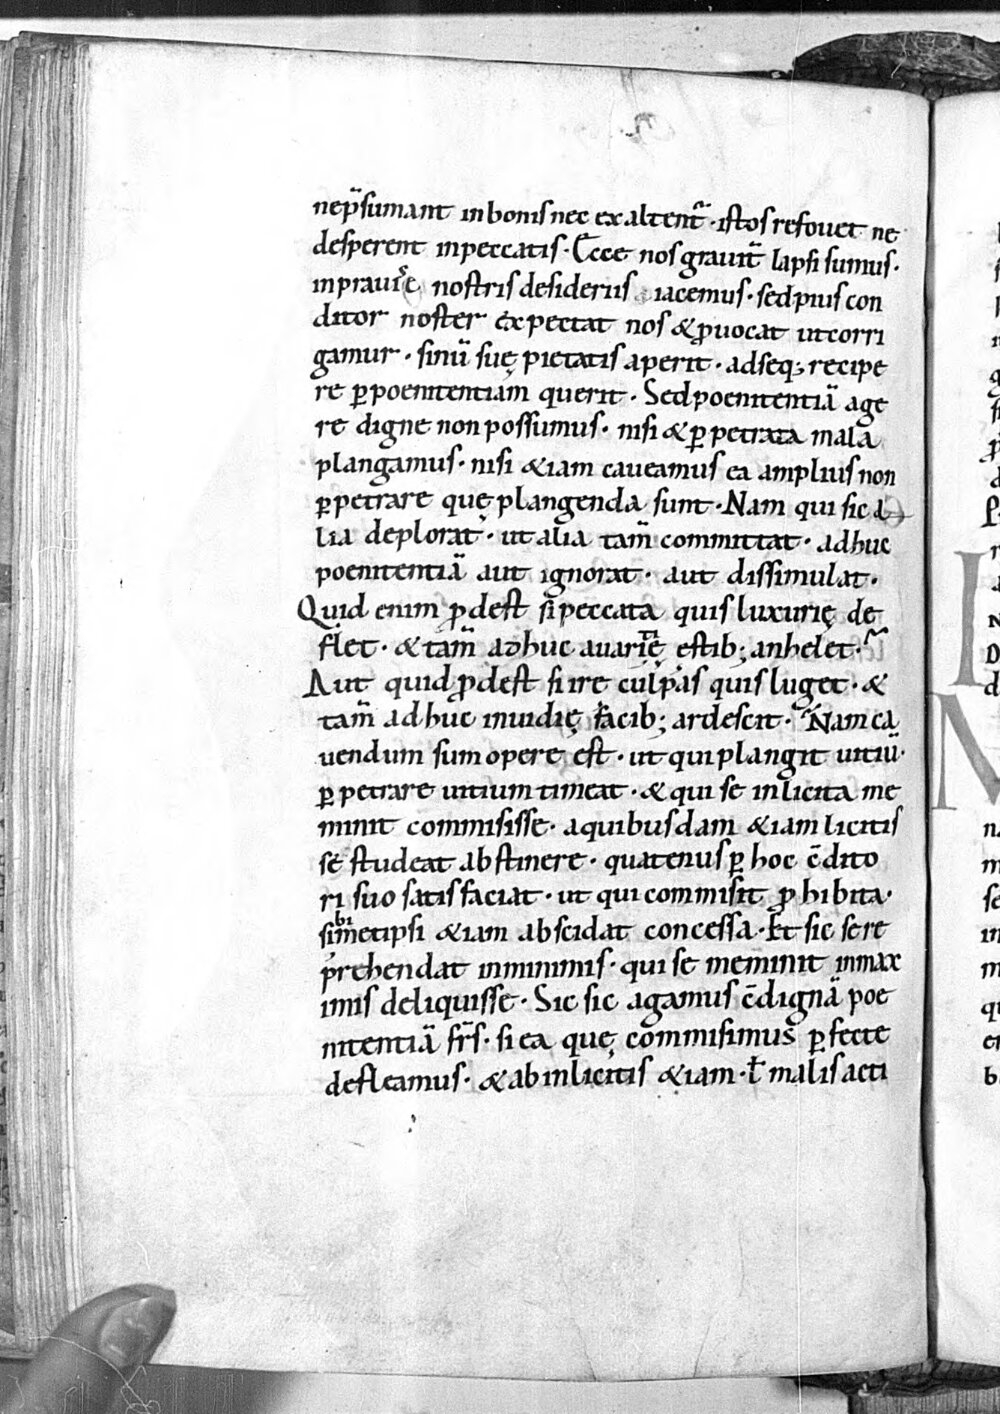 nep̄sumant inbonis nec exaltent᷑ · istos refouet ne
desperent inpeccatis · Ecce nos grauit᷑ lapsi sumus ·
inprauis nostris desideriis iacemus · sed pius con
ditor noster expectat nos & ꝓuocat ut corri
gamur · sinū suę pietatis aperit · adseq; recipe
re ꝑ poenitentiam querit · Sed poenitentiā age
re digne non possumus · nisi & ꝑpetrata mala
plangamus · nisi &iam caueamus ea amplius non
ꝑpetrare quę plangenda sunt · Nam qui sic a
lia deplorat · ut alia tam̄ committat · adhuc
poenitentiā aut ignorat · aut dissimulat ·
Quid enim ꝓdest si peccata quis luxurię de
flet · & tam̄ adhuc auaritię estib; anhelet ·
Aut quid ꝓdest si ire culpas quis luget · &
tam̄ adhuc inuidię facib; ardescit · Nam ca
uendum sumopere est · ut qui plangit uitiū ·
ꝑpetrare uitium timeat · & qui se inlicita me
minit commisisse · aquibusdam &iam licitis
se studeat abstinere · quatenus ꝑ hoc c̄dito
ri suo satisfaciat · ut qui commisit ꝓhibita ·
sibimetipsi &iam abscidat concessa · Et sic se re
p̄rehendat inminimis · qui se meminit inmax
imis deliquisse · Sic sic agamus c̄dignā poe
nitentiā fr̄s · si ea quę commisimus ꝑfecte
defleamus · & ab inlicitis &iam · ł malis acti